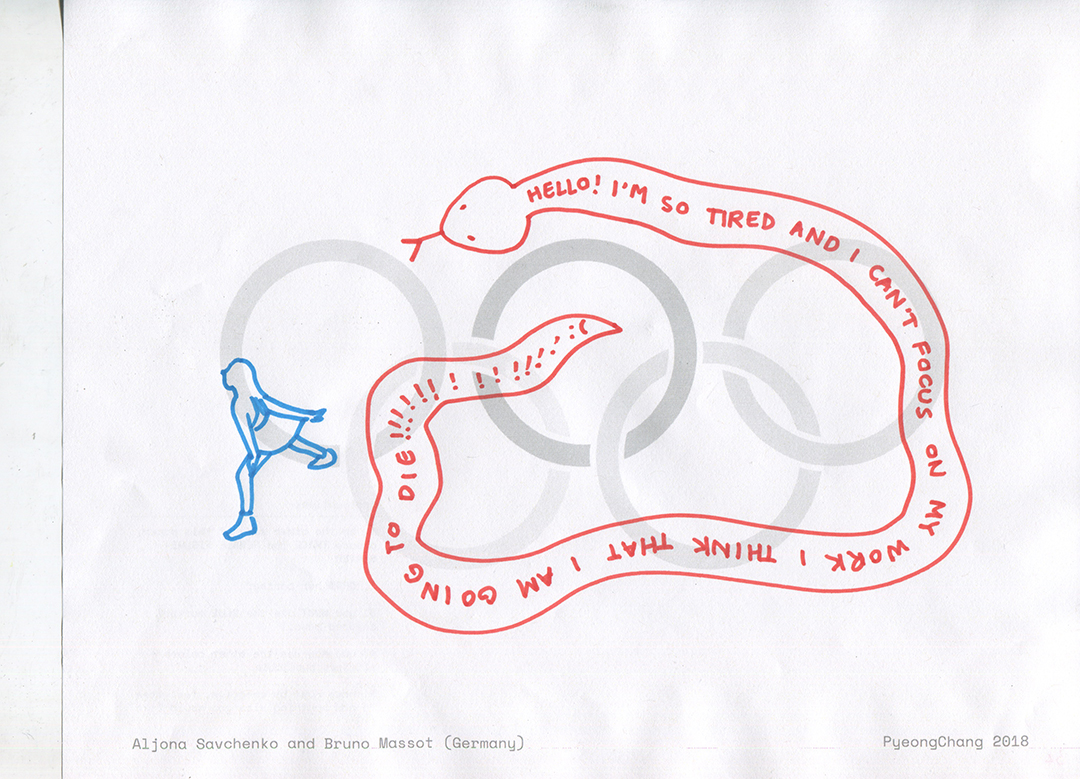 HELLO! I'M SO TIRED AND I CAN'T FOCUS ON MY WORK I THINK THAT I AM GOING TO DIE!!!!!!!! ! ! ! !!!!!! :(
Aljona Savchenko and Bruno Massot (Germany)
PyeongChang 2018